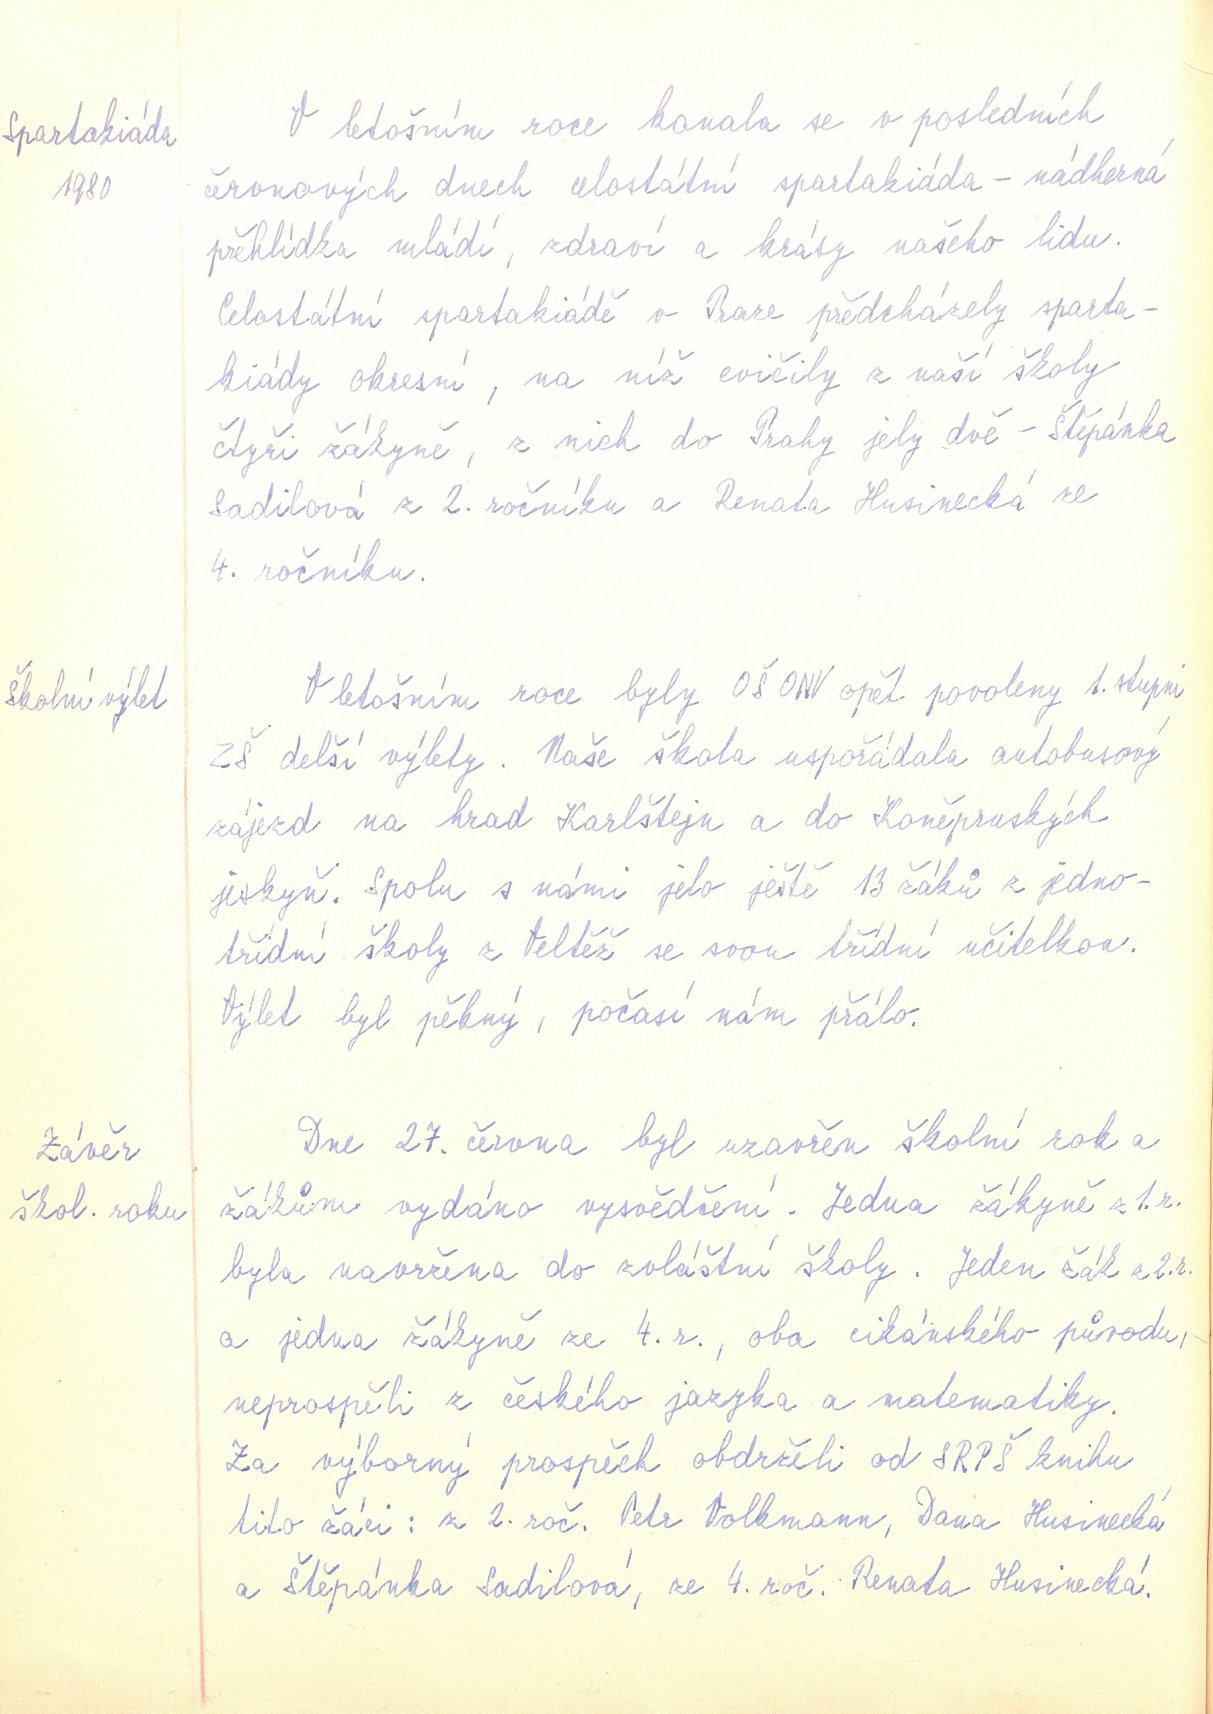 Spartakiáda
1980
V letošním roce konala se v posledních
červnových dnech celostátní spartakiáda – nádherná
přehlídka mládí, zdraví a krásy našeho lidu.
Celostátní spartakiádě v Praze předcházely sparta-
kiády okresní, na níž cvičily z naší školy
čtyři žákyně, z nich do Prahy jely dvě – Štěpánka
Sadilová z 2. ročníku a Renata Husinecká ze
4. ročníku.
Školní výlet
V letošním roce byly OŠ ONV opět povoleny 1. stupni
ZŠ delší výlety. Naše škola uspořádala autobusový
zájezd na hrad Karlštejn a do Koněpruských
jeskyň. Spolu s námi jelo ještě 13 žáků z jedno-
třídní školy z Veltěž se svou třídní učitelkou.
Výlet byl pěkný, počasí nám přálo.
Závěr
škol. roku
Dne 27. června byl uzavřen školní rok a
žákům vydáno vysvědčení. Jedna žákyně z 1. r.
byla navržena do zvláštní školy. Jeden žák z 2. r.
a jedna žákyně ze 4. r., oba cikánského původu,
neprospěli z českého jazyka a matematiky.
Za výborný prospěch obdrželi od SRPŠ knihu
tito žáci: z 2. roč. Petr Volkmann, Dana Husinecká
a Štěpánka Sadilová, ze 4. roč. Renata Husinecká.